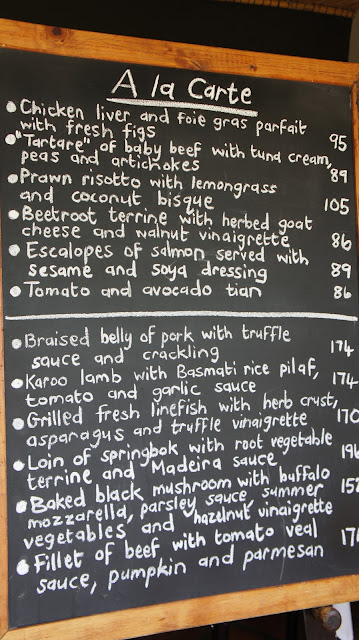 A la Carte
• Chicken liver and foie gras parfait
with fresh figs 95
• "Tartare" of baby beef with tuna cream,
peas and artichokes 89
• Prawn risotto with lemongrass
and coconut bisque 105
• Beetroot terrine with herbed goat
cheese and walnut vinaigrette 86
• Escalopes of salmon served with
sesame and soya dressing 89
• Tomato and avocado tian 86
• Braised belly of pork with truffle
sauce and crackling 174
• Karoo lamb with Basmati rice pilaf,
tomato and garlic sauce 174
• Grilled fresh linefish with herb crust,
asparagus and truffle vinaigrette 170
• Loin of springbok with root vegetable
terrine and Madeira sauce
• Baked black mushroom with buffalo
mozzarella, parsley sauce, summer
vegetables and hazelnut vinaigrette
• Fillet of beef with tomato veal
sauce, pumpkin and parmesan